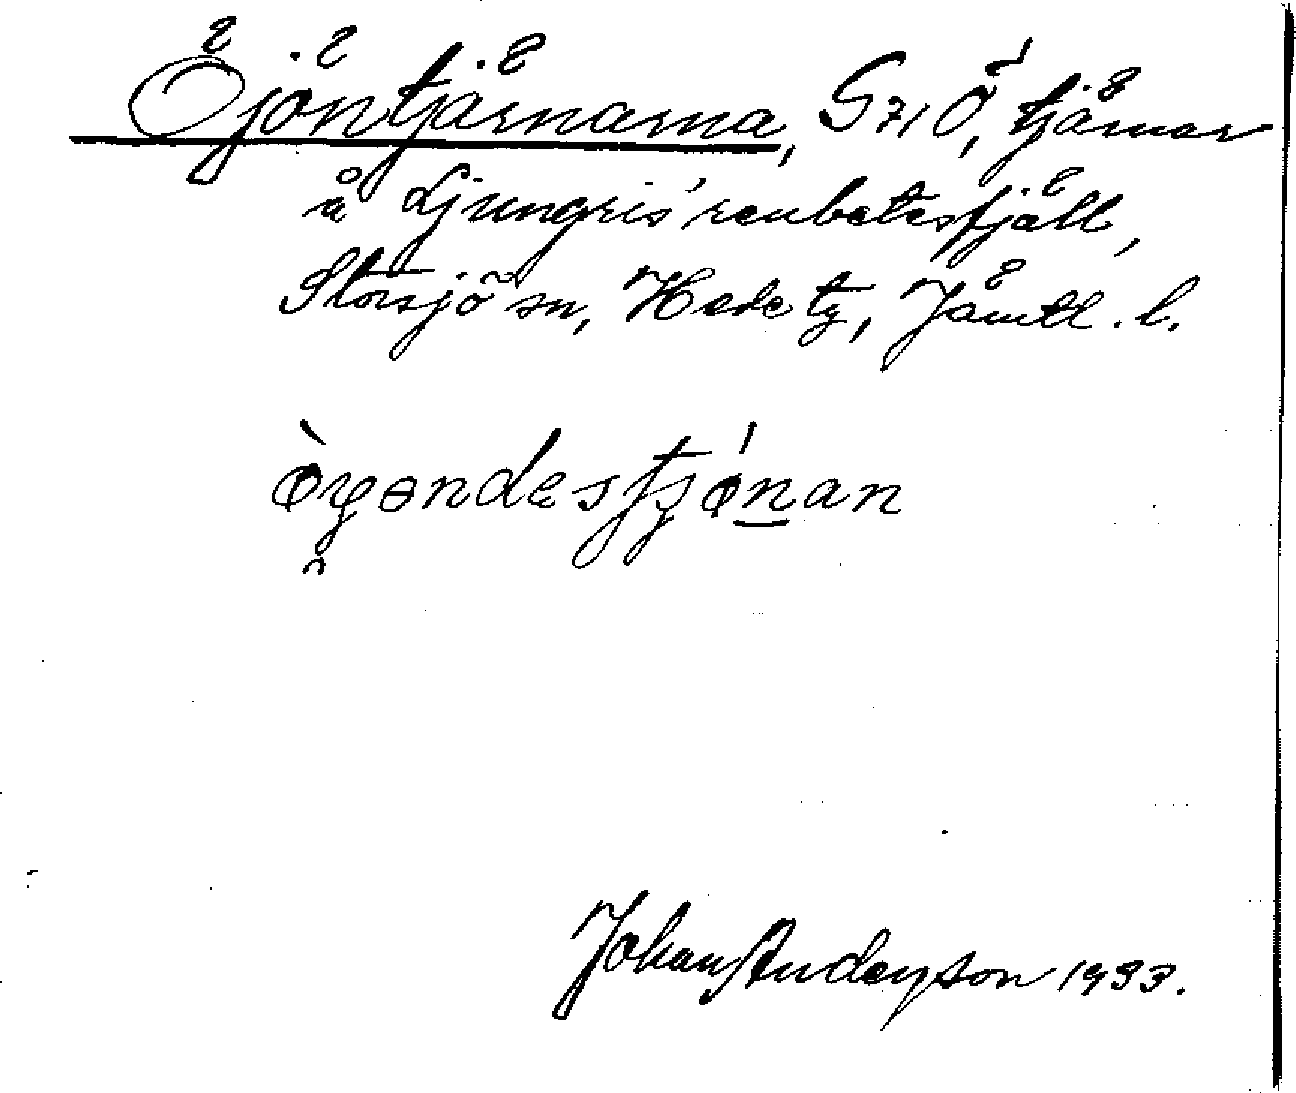 Öjöntjärnarna, G71Ö, tjärnar
å Ljungris' renbetesfjäll,
Storsjö sn, Hede tg, Jämtl. l.
Johan Anderson 1933.